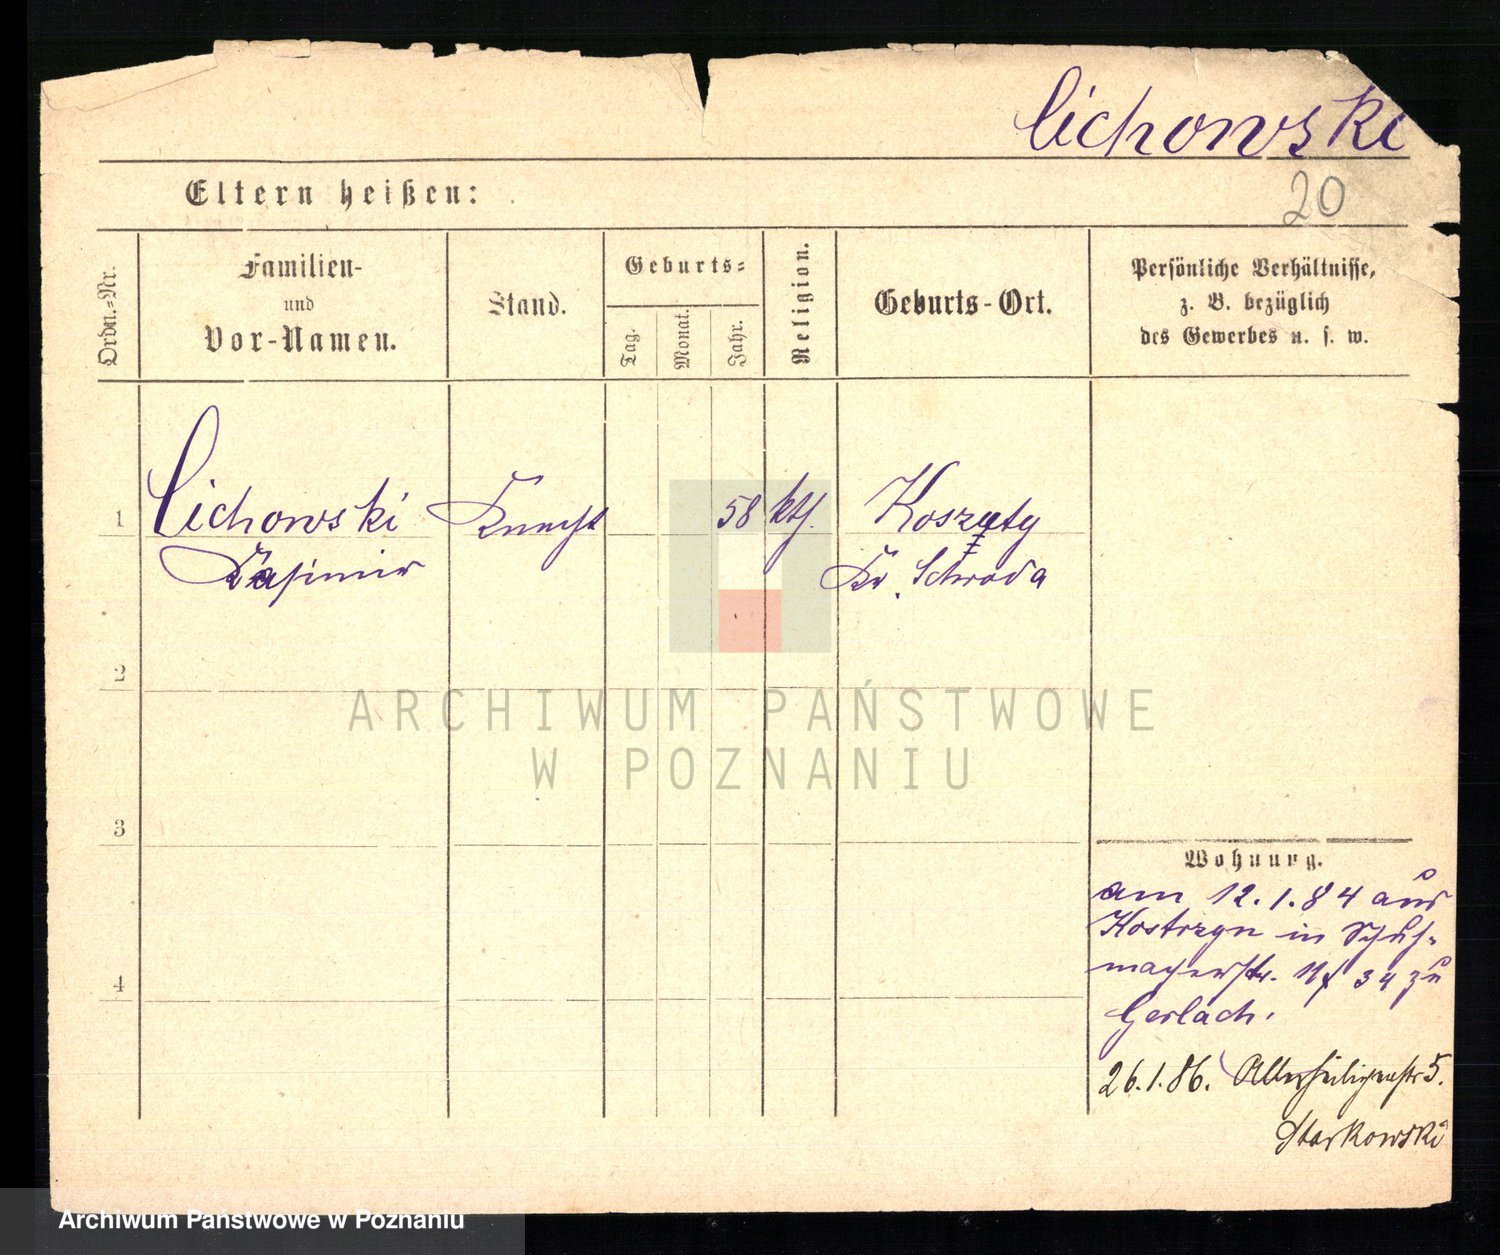 Cichowski
20
Eltern heißen:
Ordn.-Nr.
Familien-
und
Vor-Namen.
Stand.
Geburts-
Tag.
Monat.
Jahr.
Religion.
Geburts-Ort.
Persönliche Verhältnisse,
z. B. bezüglich
des Gewerbes u. s. w.
1
Cichowski
Casimir
Knecht
58
kth.
Koszuty
Kr. Schroda
2
3
4
Wohnung.
am 12.1.84 aus
Kostrzyn in Schuh-
macherstr. № 34 zu
Gerlach.
26.1.86. Allerheiligenstr 5.
Starkowski
ARCHIWUM PAŃSTWOWE
W POZNANIU
Archiwum Państwowe w Poznaniu